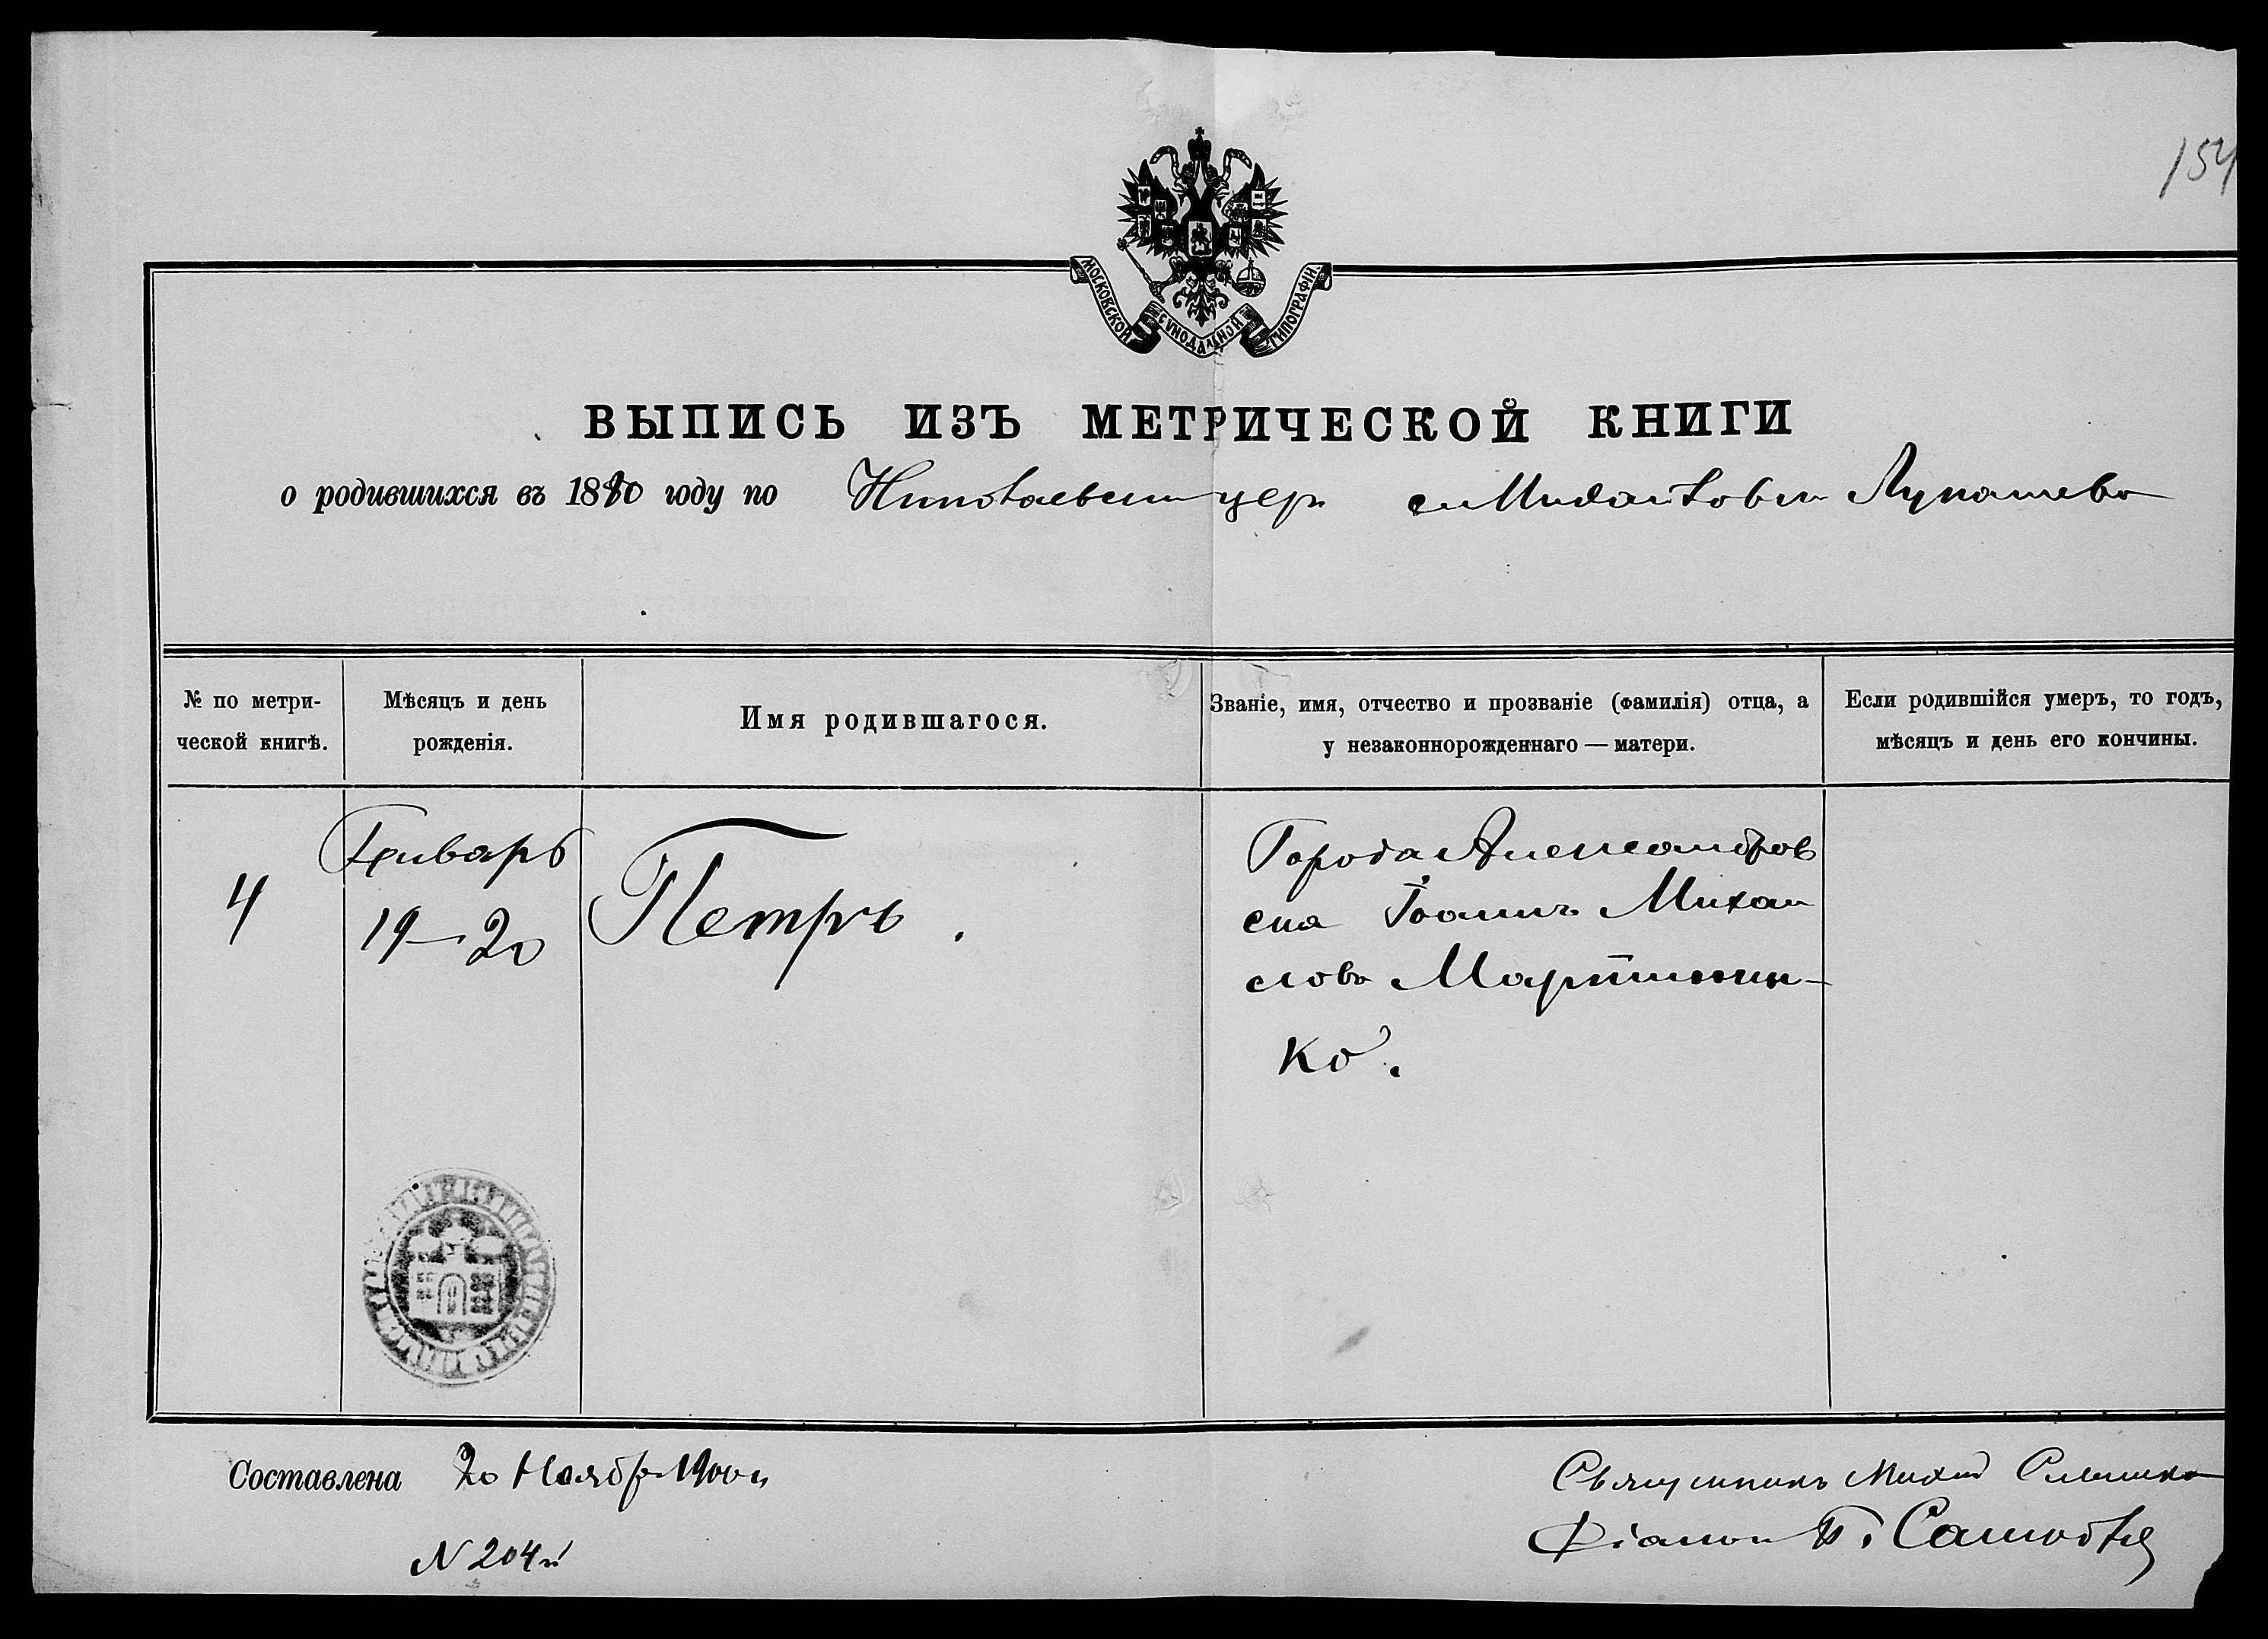 154
МОСКОВСКОЙ СУНОДАЛЬНОЙ ТИПОГРАФІИ.
ВЫПИСЬ ИЗЪ МЕТРИЧЕСКОЙ КНИГИ
о родившихся въ 1880 году по Николаевской цер. Михайловки Лукашево
№ по метри-
ческой книгѣ.
Мѣсяцъ и день
рожденія.
Имя родившагося.
Званіе, имя, отчество и прозваніе (фамилія) отца, а
у незаконнорожденнаго — матери.
Если родившійся умеръ, то годъ,
мѣсяцъ и день его кончины.
4
Январь
19 – 20
Петръ.
Города Александров
ска Іоаннъ Михаи
ловъ Мартинен-
ко.
Составлена 20 Ноябр 1900 г.
N 204й
Священникъ Михаил
Діакон П.